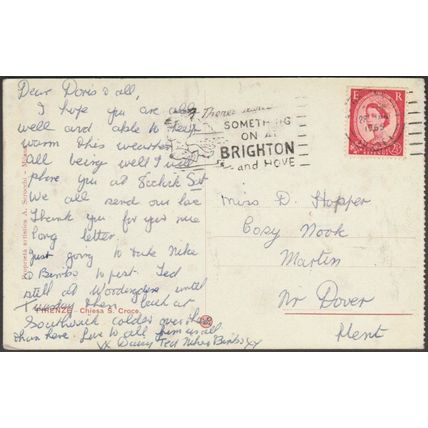 Dear Doris & all,
I hope you are all
well and able to keep
warm this weather
All being well I will
phone you at 5 o'clock Sat
We all send our love
Thank you for your nice
long letter
Just going to take Nike
& Bimbo to post. Ted
still at Woodingdean until
Tuesday then back at
Southwick colder over there
than here. Love to all from us all
xx Daisy Ted Nike & Bimbo xx
FIRENZE - Chiesa S. Croce
Proprietà artistica A. Scrocchi - Milano
There's always
SOMETHING
ON AT
BRIGHTON
and HOVE
1965
E R
2½D
Miss D. Hopper
Cosy Nook
Martin
Nr Dover
Kent